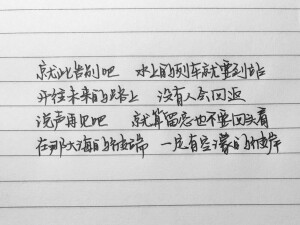 就就此告别吧 水上的列车就要到站
开往未来的路上 没有人会回返
说声再见吧 就算留恋也不要回头看
在那大海的彼端 一定有空濛的彼岸